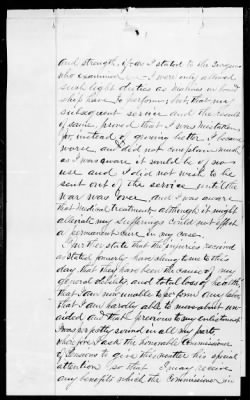 and strength, if as I stated to the Surgeon
who examined me - I were only allowed
such light duties as medicine on board
ship have to perform, but that my
subsequent service and the result
of service, proved that I was mistaken
for, instead of growing better I became
worse and did not complain much
as I was aware it would be of no
use and I did not wish to be
sent out of the service until the
war was over, and I was aware
that medical treatment although it might
alleviate my sufferings could not effect
a permanent cure in my case.
I further state that the injuries received
as stated, previously have clung to me to this
day, that they have been the cause of my
general debility and total loss of health,
that I am now unable to perform any labor
that I am hardly able to move about un-
aided and that previous to my enlistment
I was perfectly sound in all my parts
wherefore I ask the honorable Commissioner
of Pensions to give this matter his special
attention so that I may receive
any benefits which the Commissioner in